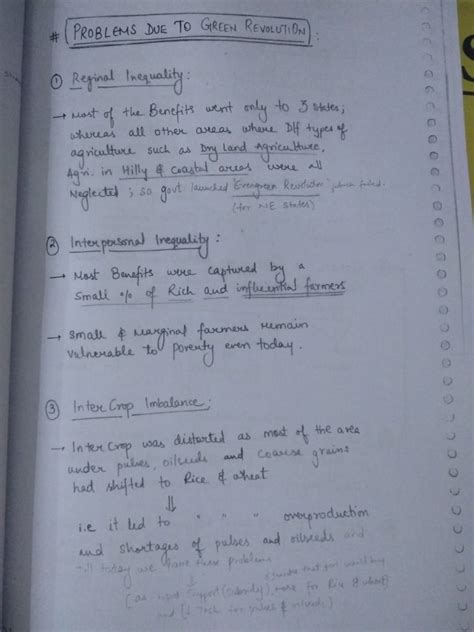 # PROBLEMS DUE TO GREEN REVOLUTION :
① Reginal Inequality :
→ Most of the Benefits went only to 3 states;
whereas all other areas where Dif types of
agriculture such as Dry Land Agriculture,
Agri. in Hilly & Coastal areas were all
Neglected ; so govt launched 'Evergreen Revolution' which failed.
(for NE States)
② Interpersonal Inequality :
→ Most Benefits were captured by a
Small % of Rich and influential farmers
→ Small & Marginal farmers remain
vulnerable to poverty even today.
③ Inter Crop Imbalance :
→ Inter Crop was distorted as most of the area
under pulses, oilseeds and coarse grains
had shifted to Rice & wheat
⇓
i.e it led to " " " overproduction
and shortages of pulses and oilseeds and
till today we have these problems
(as input support (subsidy) more for Rice & wheat)
and (↓ Tech for pulses & oilseeds)